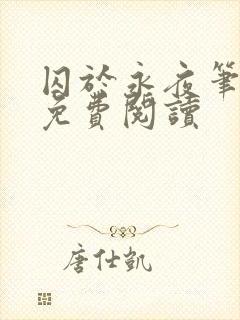 囚於永夜筆
免費閱讀
唐仕凱